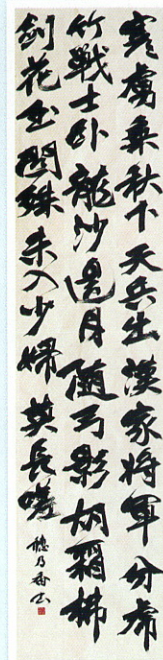 塞虜乘秋下天兵出漢家将軍分虎
竹戦士臥龍沙邊月随弓影胡霜拂
剣花玉關殊未入少婦莫長嗟